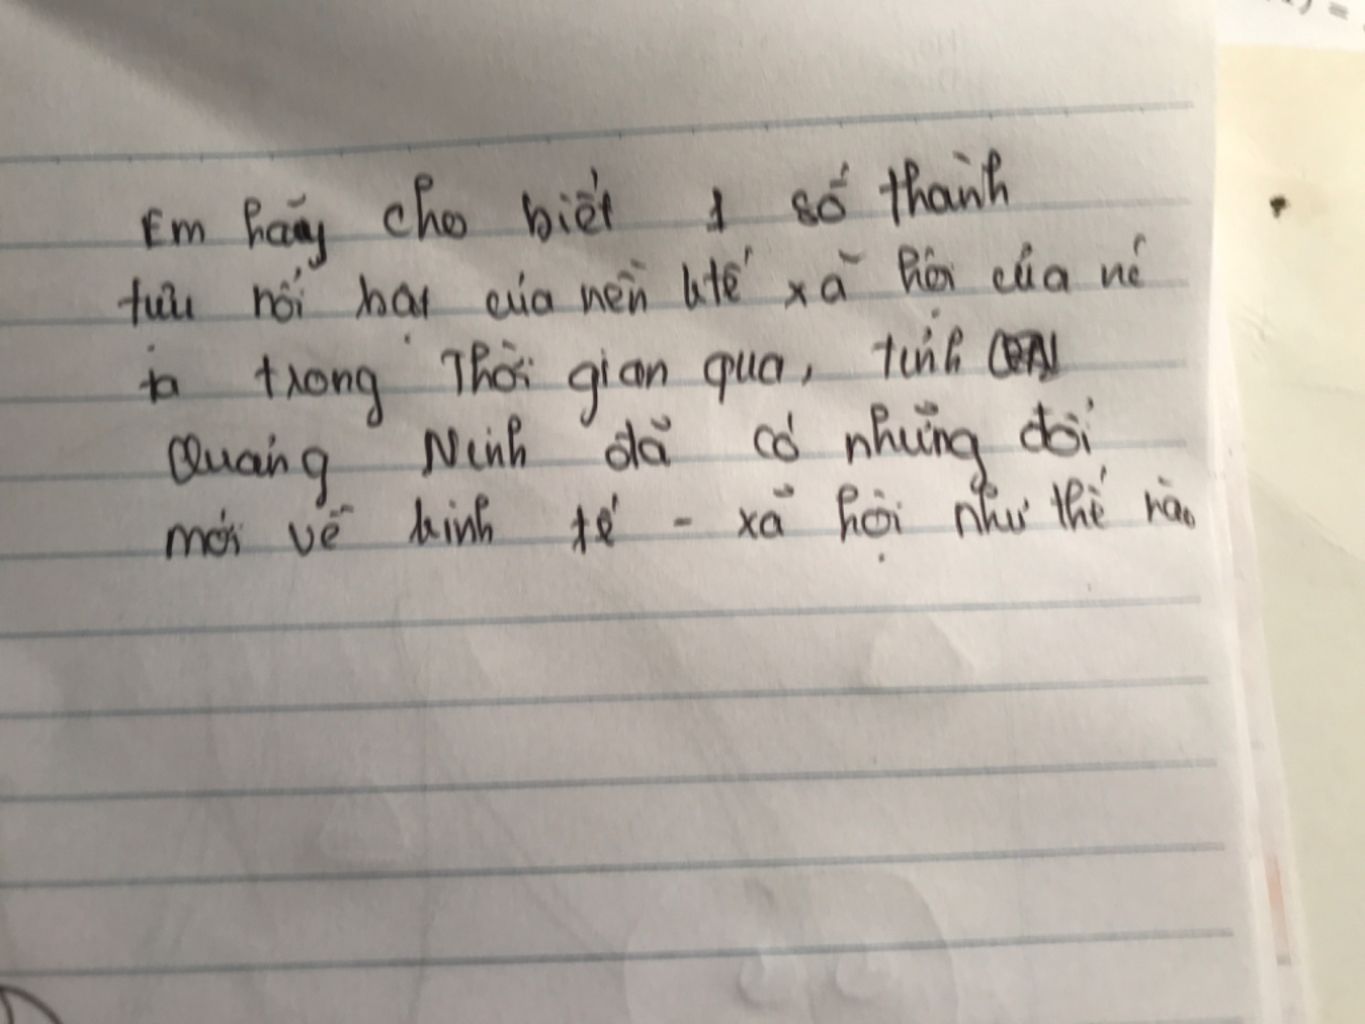 Em hãy cho biết 1 số thành
tựu nổi bật của nền ktế xã hội của nc
ta trong Thời gian qua, tỉnh
Quảng Ninh đã có những đổi
mới về kinh tế - xã hội như thế nào